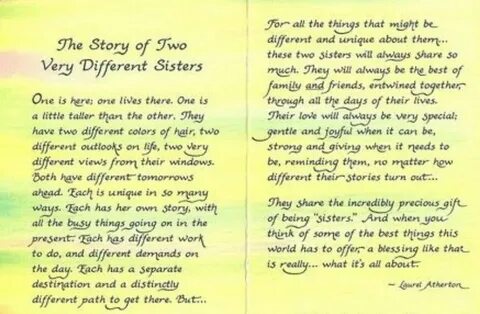 The Story of Two
Very Different Sisters
One is here; one lives there. One is
a little taller than the other. They
have two different colors of hair, two
different outlooks on life, two very
different views from their windows.
Both have different tomorrows
ahead. Each is unique in so many
ways. Each has her own story, with
all the busy things going on in the
present. Each has different work
to do, and different demands on
the day. Each has a separate
destination and a distinctly
different path to get there. But...
For all the things that might be
different and unique about them...
these two sisters will always share so
much. They will always be the best of
family and friends, entwined together,
through all the days of their lives.
Their love will always be very special;
gentle and joyful when it can be,
strong and giving when it needs to
be, reminding them, no matter how
different their stories turn out...
They share the incredibly precious gift
of being "sisters." And when you
think of some of the best things this
world has to offer, a blessing like that
is really... what it's all about.
~ Laurel Atherton